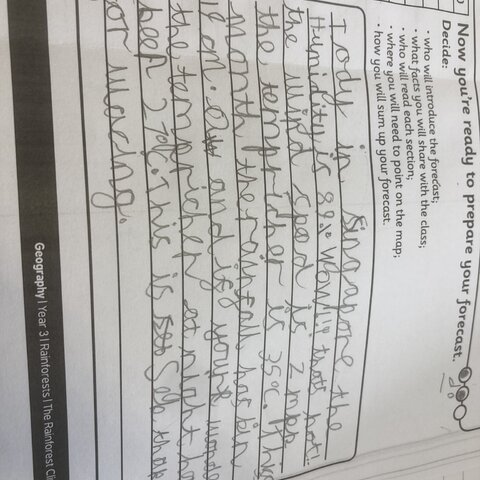 Now you're ready to prepare your forecast.
Decide:
• who will introduce the forecast;
• what facts you will share with the class;
• who will read each section;
• where you will need to point on the map;
• how you will sum up your forecast.
Tody in singapore the
Humidity is wow!!! thats hot.
the wind speed is 2 mph
the tempricher is 35°c.
month the rainfall has bin
and if your wonde
the tempricher at night ha
this is
for waching.
Geography | Year 3 | Rainforests | The Rainforest Cli